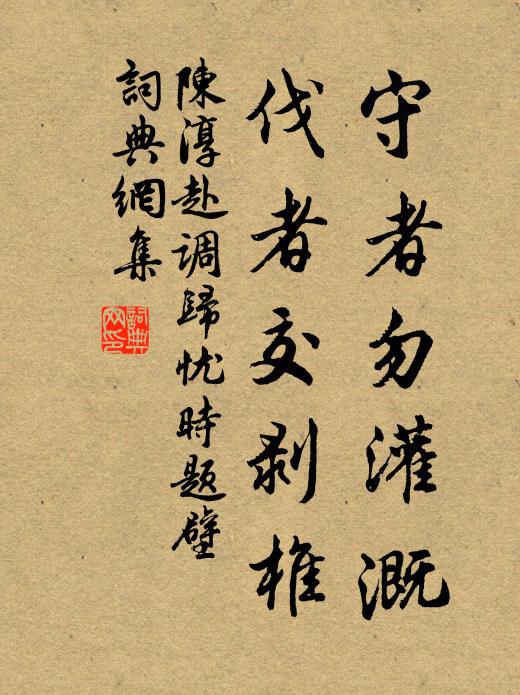 守者勿灌溉
伐者交剥椎
陳淳赴调歸忧時题壁
詞典網集
詞典网印